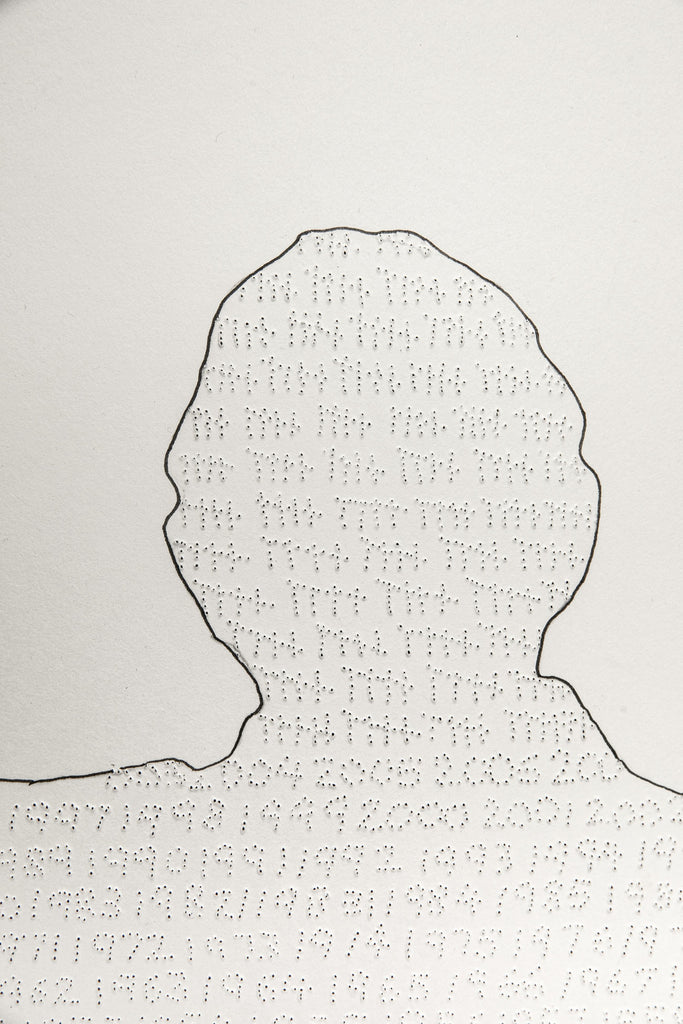 2004 2005 2006 200
1997 1998 1999 2000 2001 2002
989 1990 1991 1992 1993 1994 19
1982 1983 1984 1985 198
971 1972 1973 1974 1975 1976 19
962 1963 1964 1965 1966 1967